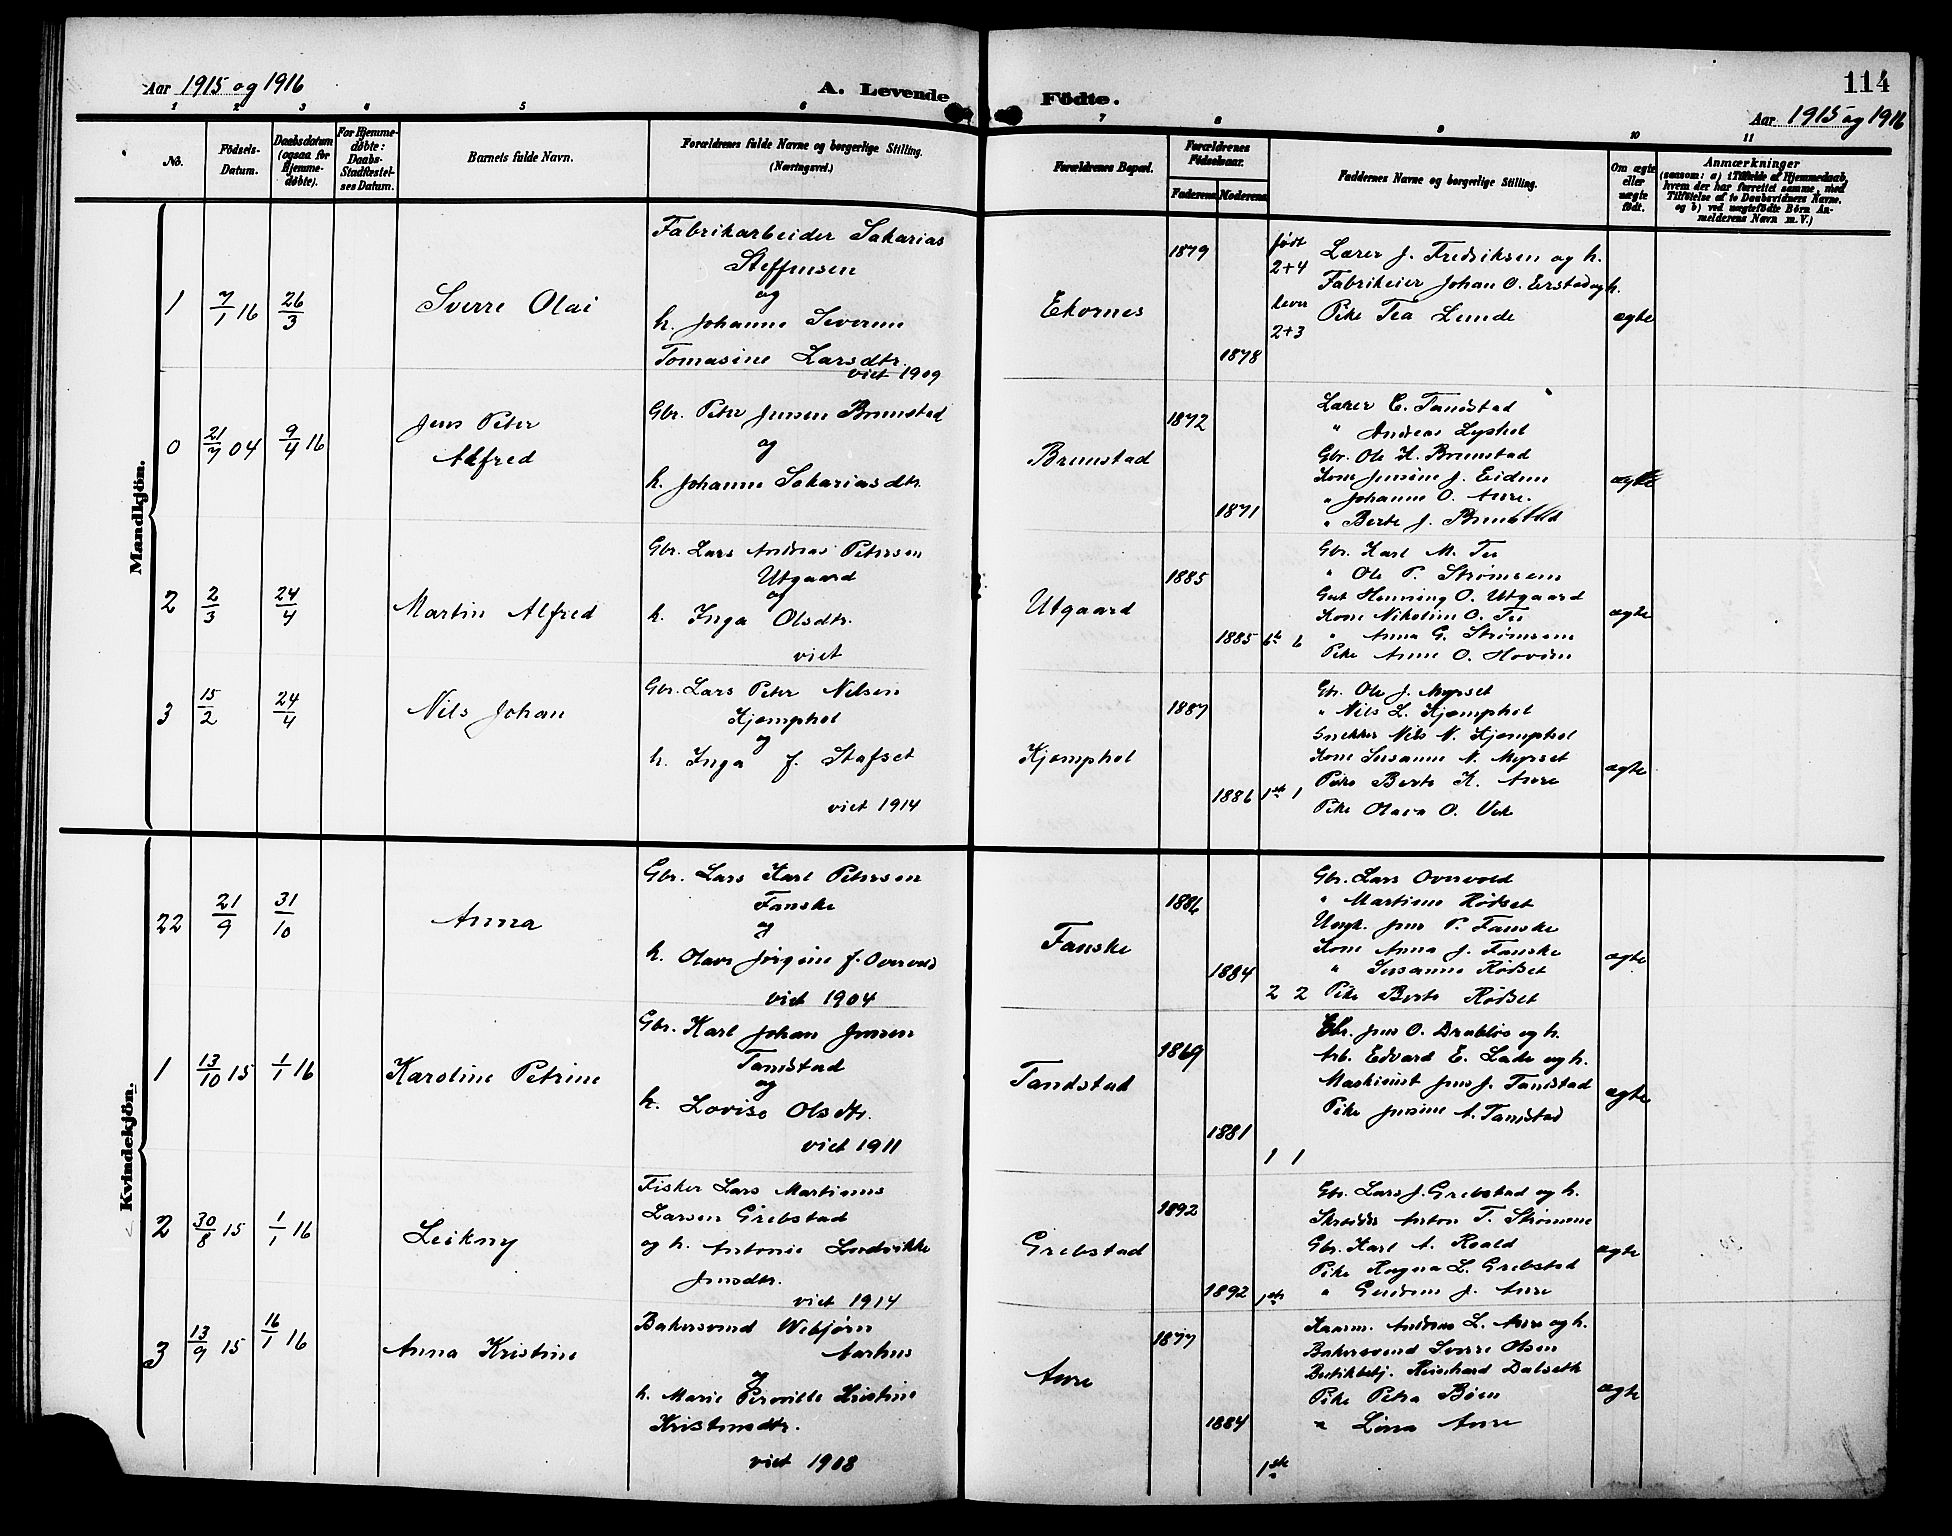 Aar 1915 og 1916
A. Levende Födte.
114
Aar 1915 og 1916
1 2 3 4 5 6 7 8 9 10 11
No.
Födsels-Datum.
Daabsdatum (ogsaa for Hjemmedøbte).
For Hjemmedøbte: Daabs-Stadfæstelses Datum.
Barnets fulde Navn.
Forældrenes fulde Navne og borgerlige Stilling. (Næringsvei.)
Forældrenes Bopæl.
Forældrenes Födselsaar.
Faderens Moderens
Faddernes Navne og borgerlige Stilling.
Om ægte eller uægte födt.
Anmærkninger
(saasom: a) i Tilfælde af Hjemmedaab, hvem der har forrettet samme, med Tilföielse af to Daabsvidners Navne, og b) ved uægtefödte Börn Anmelderens Navn m. V.)
Mandkjön.
1
7/1 16
26/3
Sverre Olai
Fabrikarbeider Sakarias
Steffensen
og
h. Johanne Severine
Tomasine Larsdtr.
viet 1909
Ekornes
1879
1878
født
2+4
lever
2+3
Lærer J. Fredriksen og h.
Fabrikeier Johan O. Erstad og h.
Pike Tea Lunde
ægte
0
21/7 04
9/4 16
Jens Peter
Alfred
Gbr. Peter Jensen Brunstad
og
h. Johanne Sakariasdtr.
Brunstad
1872
1871
Lærer C. Tandstad
" Andreas Lyshol
Gbr. Ole K. Brunstad
Kone Jensine J. Eidem
" Johanne O. Aure.
" Berte J. Brunstad
ægte
2
2/3
24/4
Martin Alfred
Gbr. Lars Andreas Petersen
Utgaard
og
h. Inga Olsdtr.
viet
Utgaard
1885
1885
6te 6
Gbr. Karl M. Tu
" Ole P. Strømsem
Gut Henning O. Utgaard
Kone Nikoline O. Tu
" Anna G. Strømsem
Pike Anne O. Hovden
ægte
3
15/2
24/4
Nils Johan
Gbr. Lars Peter Nilsen
Kjemphol
og
h. Inga J. Stafset
viet 1914
Kjemphol
1887
1886
1ste 1
Gbr. Ole J. Myrset
" Nils L. Kjemphol
Snekker Nils N. Kjemphol
Kone Susanne N. Myrset
Pike Berte K. Aure
Pike Olava O. Vik
ægte
Kvindekjön.
22
21/9
31/10
Anna
Gbr. Lars Karl Petersen
Fauske
og
h. Olave Jørgine J. Overvold
viet 1904
Fauske
1886
1884
2 2
Gbr. Lars Overvold
" Martinus Rødset
Ungk. Jens P. Fauske
Kone Anna J. Fauske
" Susanne Rødset
Pike Berte Rødset
ægte
1
13/10 15
1/1 16
Karoline Petrine
Gbr. Karl Johan Jensen
Tandstad
og
h. Lovise Olsdtr.
viet 1911
Tandstad
1869
1881
1 1
Gbr. Jens O. Drabløs og h.
Arb. Edvard E. Lade og h.
Maskinist Jens J. Tandstad
Pike Jensine A. Tandstad
ægte
2
30/8 15
1/1 16
Leikny
Fisker Lars Martinus
Larsen Grebstad
og h. Antonie Lovdvikke
Jensdtr.
viet 1914
Grebstad
1892
1892
1ste
Gbr. Lars J. Grebstad og h.
Skrædder Anton T. Strømme
Gbr. Karl A. Roald
Pike Ragna L. Grebstad
" Gudrun J. Aure
ægte
3
13/9 15
16/1 16
Anna Kristine
Bakersvend Webjørn
Aarhus
og
h. Marie Pernille Kristine
Kristensdtr.
viet 1908
Aure
1877
1884
1ste
Kaarm. Andreas L. Aure og h.
Bakersvend Sverre Olsen
Butikbetj. Reinhard Dalseth
Pike Petra Bøen
" Lina Aure
ægte